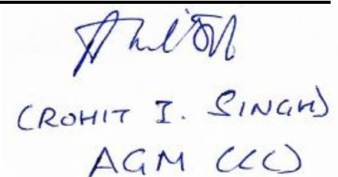 (ROHIT I. SINGH)
AGM (CC)